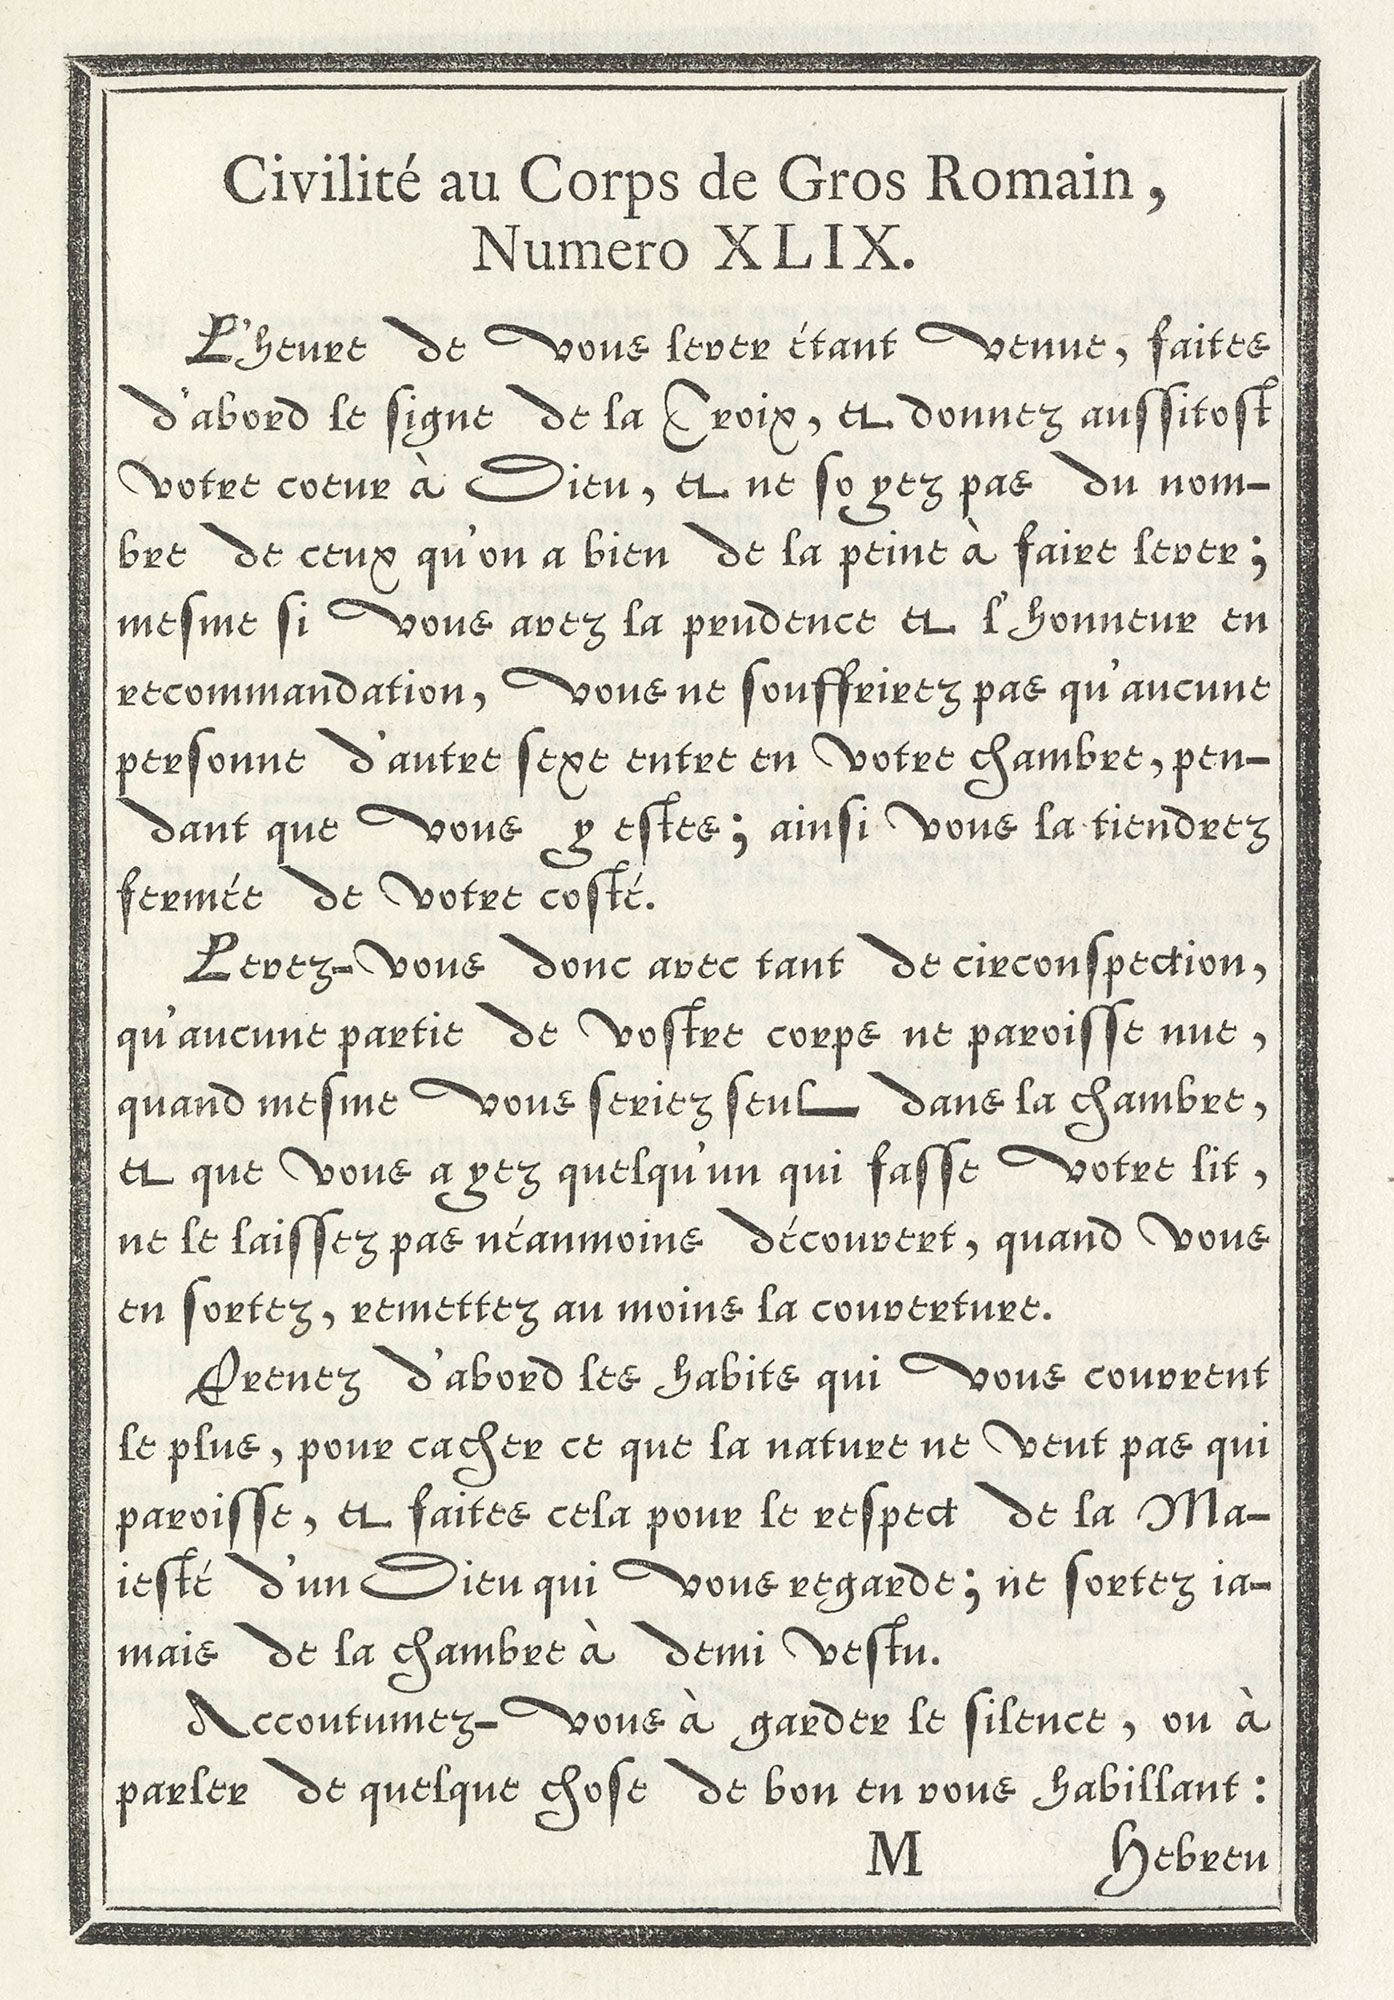 Civilité au Corps de Gros Romain,
Numero XLIX.
L'heure de vous lever étant venue, faites
d'abord le signe de la Croix, et donnez aussitost
votre coeur à Dieu, et ne soyez pas du nom-
bre de ceux qu'on a bien de la peine à faire lever;
mesme si vous avez la prudence et l'honneur en
recommandation, vous ne souffrirez pas qu'aucune
personne d'autre sexe entre en votre chambre, pen-
dant que vous y estes; ainsi vous la tiendrez
fermée de votre costé.
Levez-vous donc avec tant de circonspection,
qu'aucune partie de vostre corps ne paroisse nue,
quand mesme vous seriez seul dans la chambre,
et que vous ayez quelqu'un qui fasse votre lit,
ne le laissez pas néanmoins découvert, quand vous
en sortez, remettez au moins la couverture.
Prenez d'abord les habits qui vous couvrent
le plus, pour cacher ce que la nature ne veut pas qui
paroisse, et faites cela pour le respect de la Ma-
iesté d'un Dieu qui vous regarde; ne sortez ia-
mais de la chambre à demi vestu.
Accoutumez-vous à garder le silence, ou à
parler de quelque chose de bon en vous habillant:
M Hebreu